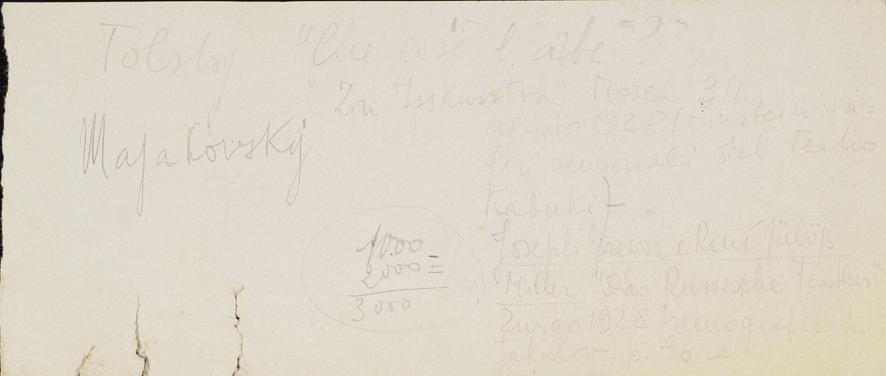 Tolstoj "Che cos'è l'arte"?
"Zin Isskusstva" Mosca 34
Majakovskij
agosto 1928 (Einstein:
sensoriali del Teatro
Kabuki)
1000
2000 =
3000
Joseph Gregor e René Fülöp
Miller "Das Russische Teather"
Zurigo 1928 scenografie di
Jakulov, p. 96